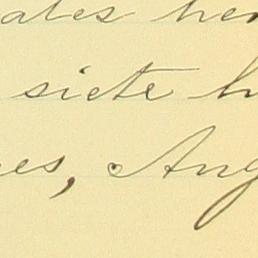 ales her
siete h
es, Ang